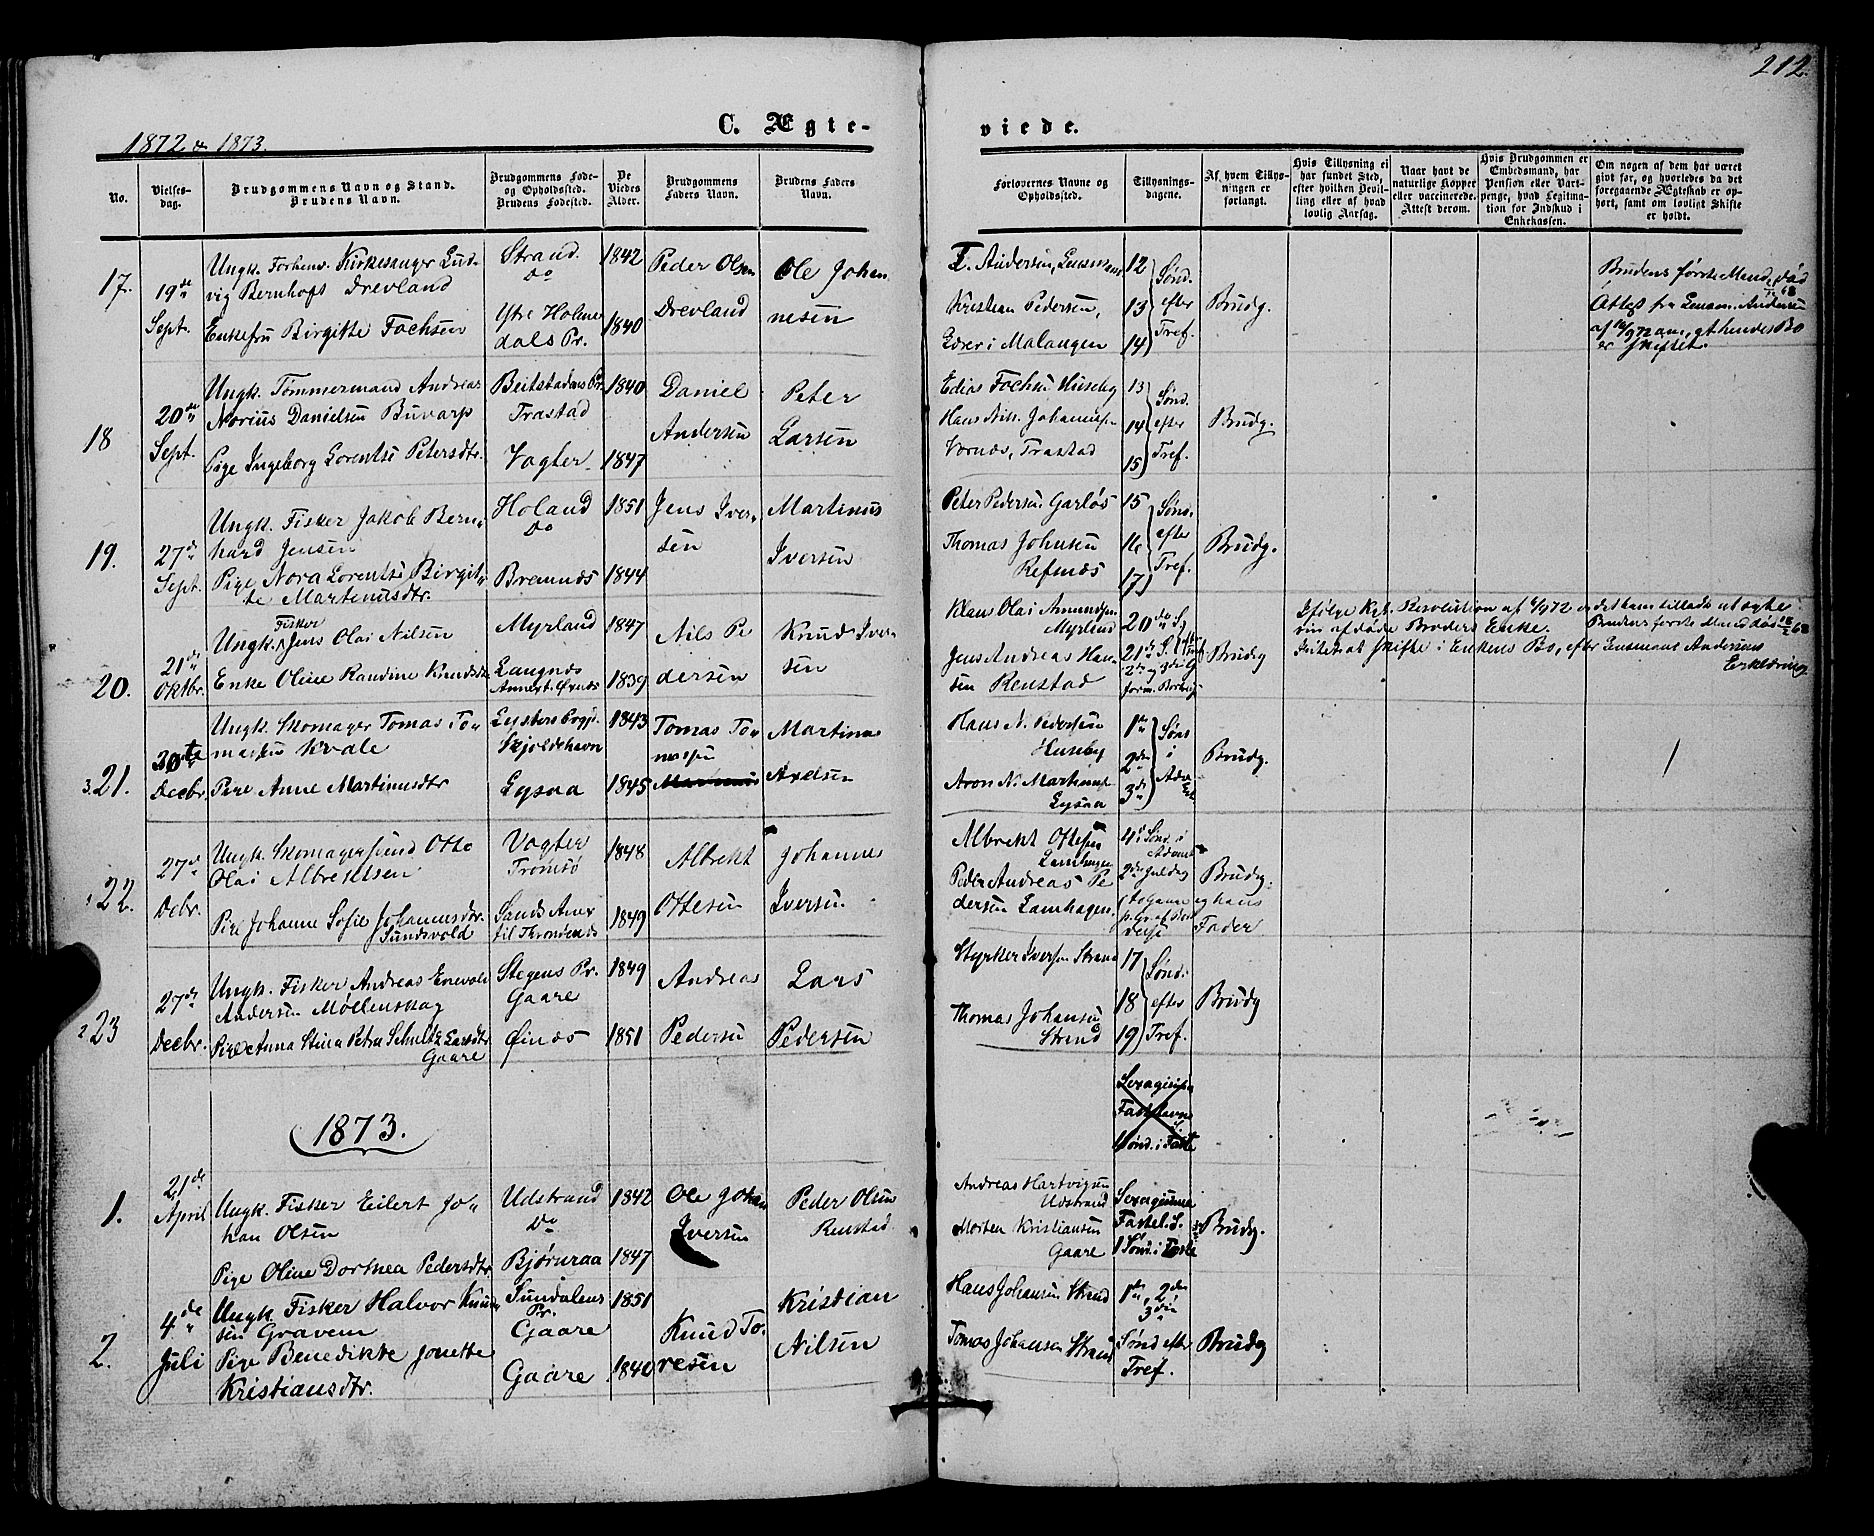 212.
1872 & 1873.
C. Ægte-
viede.
No.
Vielses-
dag.
Brudgommens Navn og Stand.
Brudens Navn.
Brudgommens Føde-
og Opholdssted.
Brudens Fødested.
De
Viedes
Alder.
Brudgommens
Faders Navn.
Brudens Faders
Navn.
Forlovernes Navne og
Opholdssted.
Tillysnings-
dagene.
Af hvem Tillys-
ningen er
forlangt.
Hvis Tillysning ei
har fundet Sted,
efter hvilken Bevil-
ling eller af hvad
lovlig Aarsag.
Naar havt de
naturlige Kopper
eller vaccinerede.
Attest derom.
Hvis Brudgommen er
Embedsmand, har
Pension eller Vart-
penge, hvad Legitima-
tion for Indskud i
Enkekassen.
Om nogen af dem har været
givt før, og hvorledes da det
foregaaende Ægteskab er op-
hørt, samt om lovligt Skifte
er holdt.
17.
19de
Sept.
Ungk. Forhenv. Kirkesanger Lud-
vig Bernhoft Drevland
Enkefru Birgitte Fochsen
Strand
do
Ytre Holme
dals Pr.
1842
1840
Peder Olsen
Drevland
Ole Johan
nesen
I. Andersen, Lensmand
Kristian Pedersen,
Lærer i Malangen
12
13
14
Sønd.
efter
Tref.
Brudg.
Brudens første Mand død
Attest fra Lensm. Andersen
er skiftet.
18
20de
Sept.
Ungk. Tømmermand Andreas
Norius Danielsen Buvarp
Pige Ingeborg Lorentse Petersdtr.
Beitstadens Pr.
Trastad
Vogter
1840
1847
Daniel
Andersen
Peter
Larsen
Edias Fochs. Huseby
Hans Nik. Johannes.
Vornæs, Trastad
13
14
15
Sønd.
efter
Tref.
Brudg.
19.
27de
Sept.
Ungk. Fisker Jakob Bern-
hard Jensen
Pige Nora Lorentse Birgit-
te Martinusdtr.
Holand
do
Bremnes
1851
1844
Jens Iver-
sen
Martinus
Iversen
Peter Pedersen Garløs
Thomas Johnsen
Refsnæs
15
16
17
Sønd.
efter
Tref.
Brudg.
20.
21de
Oktbr.
Fisker
Ungk. Jens Olai Nilsen
Enke Oline Randine Knudsdtr
Myrland
Langnæs
1847
1839
Nils Pe
dersen
Knud Iver-
sen
Klaus Olai Amundsen
Myrland
Jens Andreas Han-
sen Renstad
20de S.
21de S.
Brudg
Ifølge Kgl. Resolution af 6/9 72 er det ham tilladt at ægte
sin afdøde Broders Enke.
Brudens første Mand død
skiftet i Enkens Bo, efter Lensmand Andersens
Erklæring
21.
30te
Decbr.
Ungk. Skomager Tomas To-
massen Kvale
Pige Anne Martinusdtr
Lysters Prgj.
Skjoldehavn
Lysaa
1843
1845
Tomas To-
massen
Martinus
Axelsen
Hans N. Pedersen
Huseby
Aron N. Martinus.
Lysaa
1ste
2den
3de
Sønd
i
Advent
Brudg.
22.
27de
Dcbr.
Ungk. Skomagersvend Otto
Olai Albrektsen
Pige Johanne Sofie Johannesdtr.
Sundsvold
Vogter
Tromsø
Sands Anex
til Throndenæs
1848
1849
Albrekt
Ottesen
Johannes
Iversen
Albrekt Ottesen
Lamhagen
Peder Andreas Pe
dersen Lamhagen
4de Sønd. i
Advent
2den Juledag
Brudg:
og hans
Fader
23
27de
Decbr.
Ungk. Fisker Andreas Enevold
Andersen Møllenskog
Pige Anna Stina Petra Schultz Larsdtr
Gaare
Stegens Pr.
Gaare
Øinæs
1849
1851
Andreas
Pedersen
Lars
Pedersen
Styrker Iversen Strand
Thomas Johansen
Strand
17
18
19
Sønd.
efter
Tref.
Brudg
1873.
Sexagesima
Fastelavns
1 Sønd. i Faste
1.
21de
April
Ungk. Fisker Eilert Jo-
han Olsen
Pige Oline Dorthea Pedersdtr.
Udstrand
do
Bjørnraa
1842
1847
Ole Johan
Iversen
Peder Olsen
Renstad
Andreas Hartvigsen
Udstrand
Morten Kristiansen
Gaare
Sexagesima
Fastel. S.
1 Sønd. i Faste
Brudg.
2.
4de
Juli
Ungk. Fisker Halvor Knud-
sen Gravem
Pige Benedikte Jonette
Kristiansdtr.
Sundalens
Pr.
Gaare
Gaare
1851
1840
Knud To-
resen
Kristian
Nilsen
Hans Johansen Strand
Tomas Johansen Strand
1ste, 2den
3die
Sønd efter
Tref.
Brudg